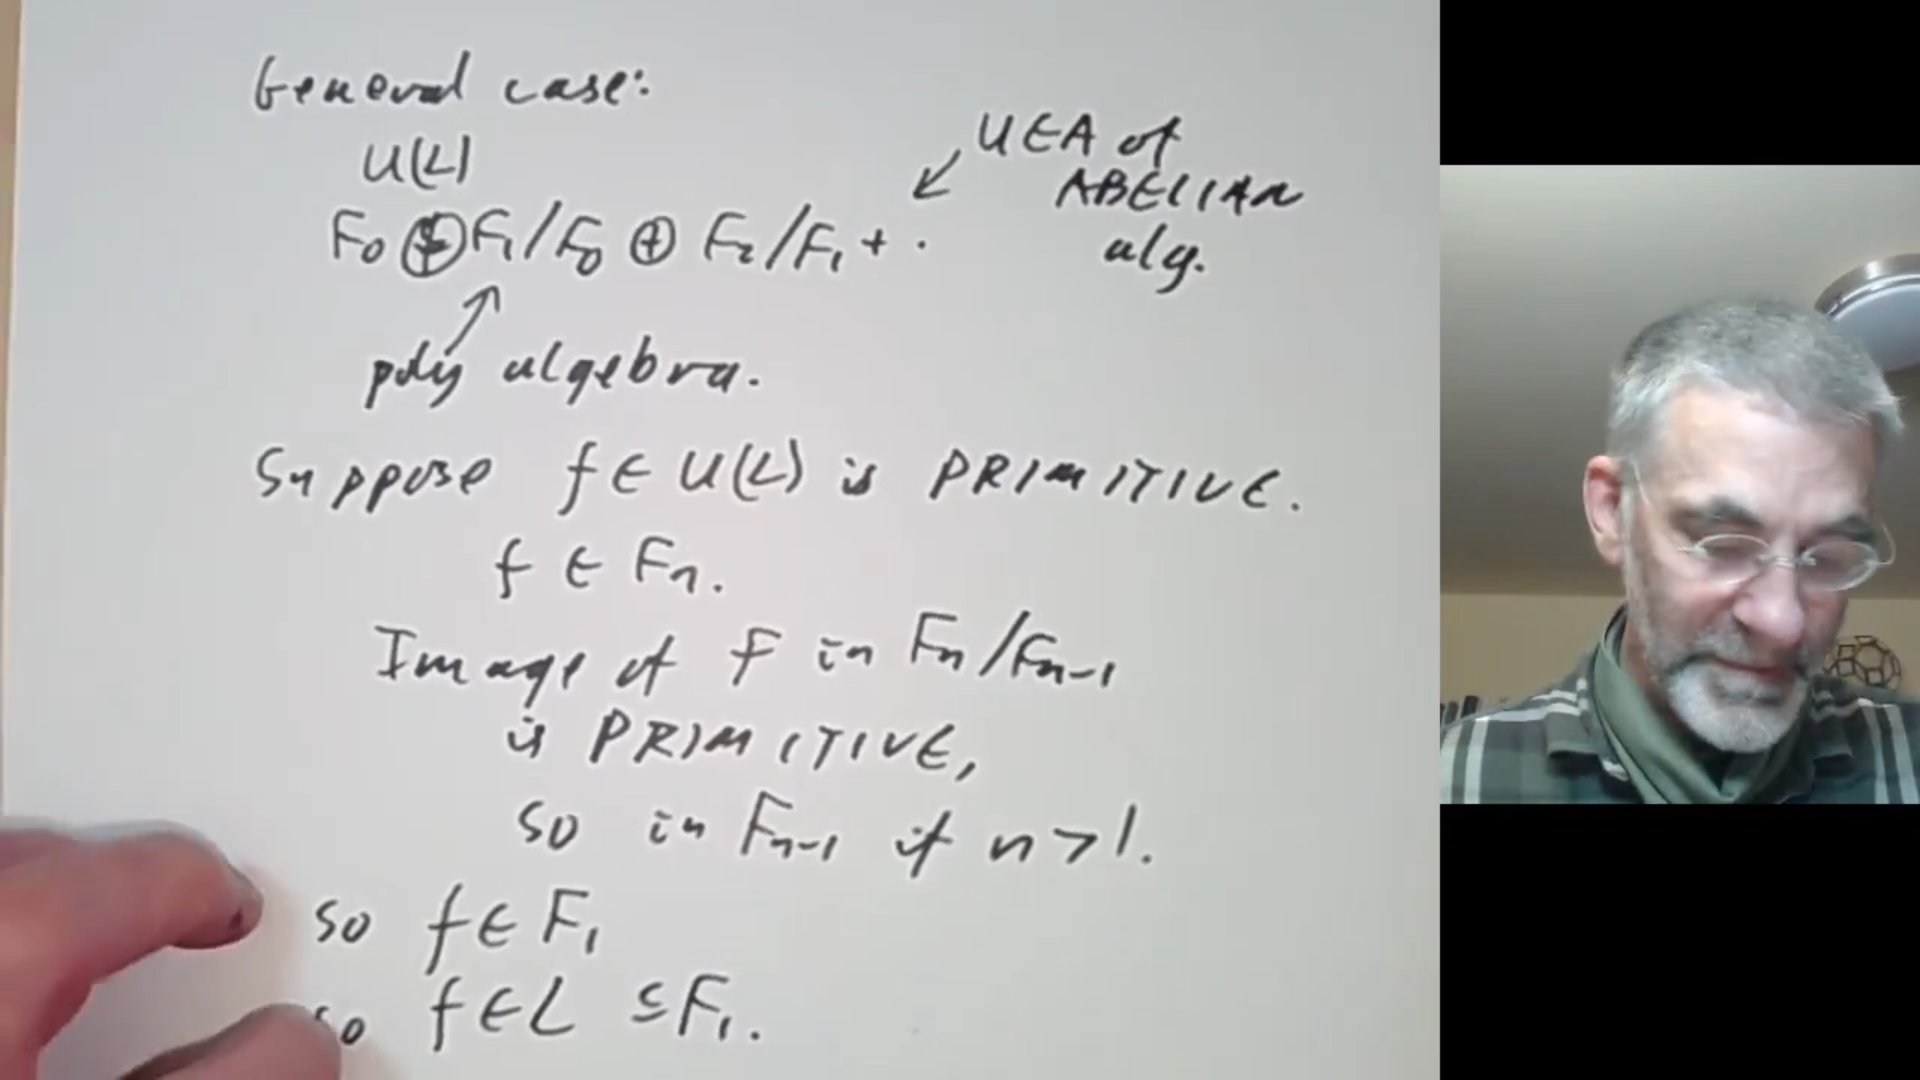 General case:
U(L)
F₀ ⊕ F₁/F₀ ⊕ F₂/F₁ + ·
UEA of
ABELIAN
alg.
poly algebra.
Suppose f ∈ U(L) is PRIMITIVE.
f ∈ Fₙ.
Image of f in Fₙ/Fₙ₋₁
is PRIMITIVE,
so in Fₙ₋₁ if n > 1.
so f ∈ F₁
so f ∈ L ⊆ F₁.